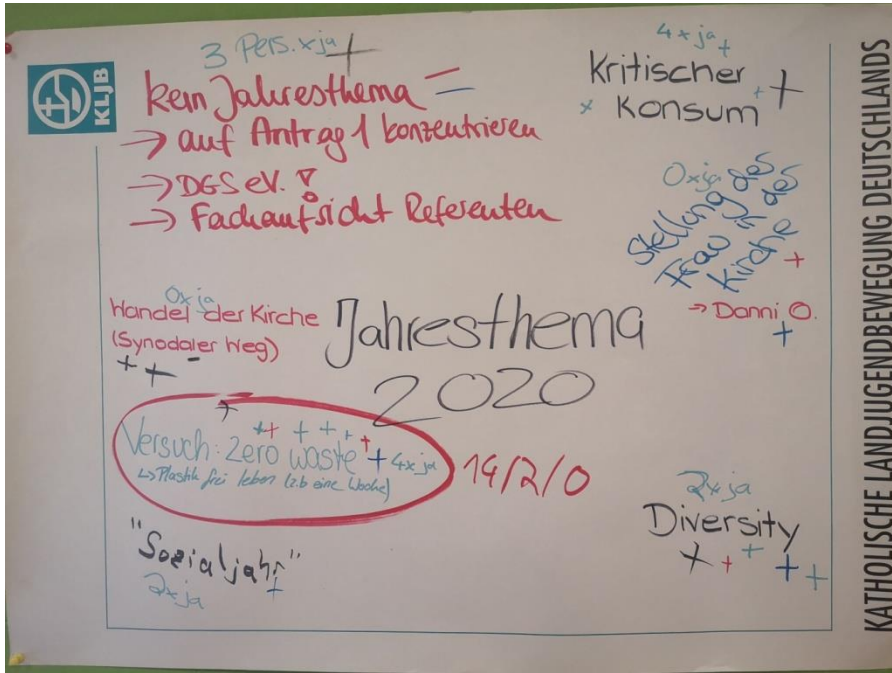 3 Pers. x ja +
kein Jahresthema
→ auf Antrag 1 konzentrieren
→ DGS eV. !
→ Fachaufsicht Referenten
4x ja +
Kritischer +
x Konsum +
0x ja
Stellung der
Frau in der
Kirche
+
→ Danni O.
+
0x ja
Wandel der Kirche
(Synodaler Weg)
+ + -
Jahresthema
2020
+
+ + + + + +
Versuch: Zero waste + 4x ja
↳ Plastik frei leben (z.b eine Woche)
14/2/0
"Sozialjahr"
2x ja +
2x ja
Diversity
+ + + + +
KLJB
KATHOLISCHE LANDJUGENDBEWEGUNG DEUTSCHLANDS